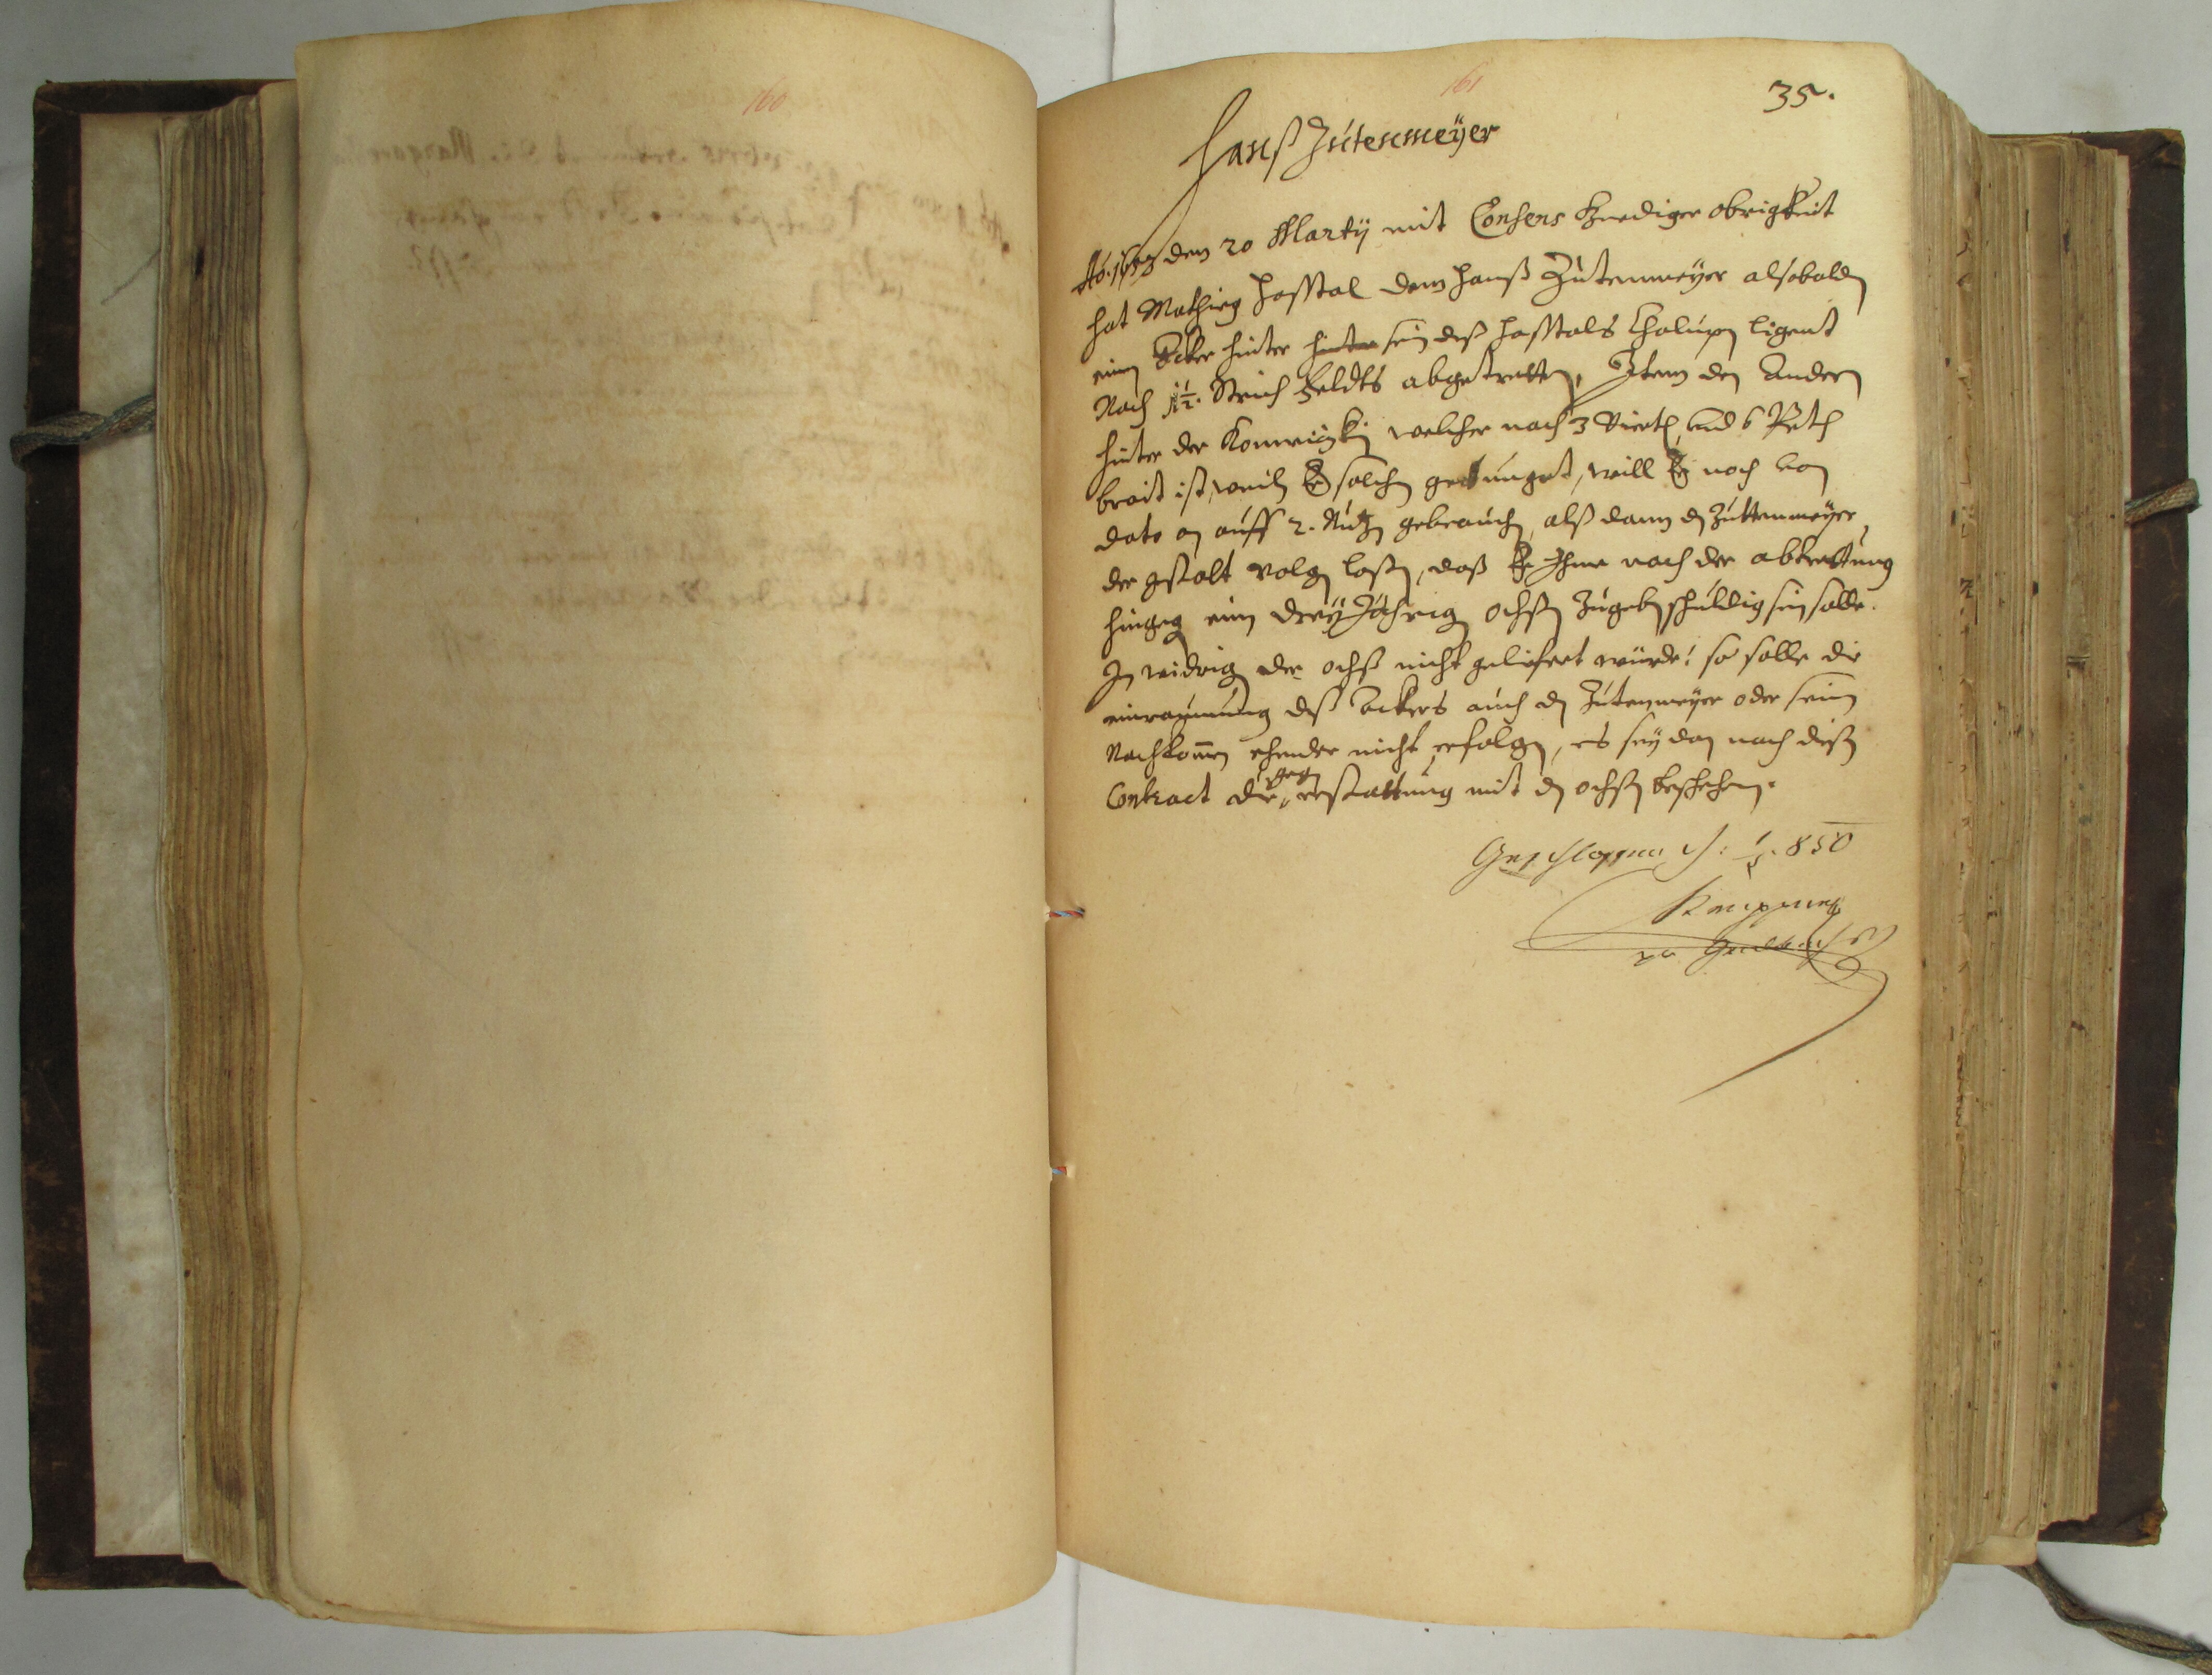 160
161
35.
Hanß Zutenmeÿer
Ao. 1673 den 20 Martÿ mit Consens Gnediger obrigkeit
hat Mathieß Hasstal dem Hanß Zutenmeÿer alsobalden
einen Acker hinter hinter sein deß Hasstals Chalupen ligent
Nach 1½. Strich Feldts abgetretten, Item den Andern
hinter der welcher nach 3 Viertl, und 6 Petl
breit ist, weilen Er solchen getunget, will Er noch von
dato an auff 2. Nutzen gebrauchen, alß dann den Zuttenmeÿer
der gestalt volgen laßen, daß Er Ihme nach der abtrettung
hingegen einen dreÿ Jährigen ochsen Zugeben schuldig sein solle.
In widrigen der ochß nicht geliefert würde: so solle die
einraumung deß ackers auch den Zutenmeÿer oder seinen
Nachkomen ehender nicht erfolgen, es seÿ dan nach dießen
Contract die gegen erstattung mit den ochsen beschehen.
Geschlossen 850